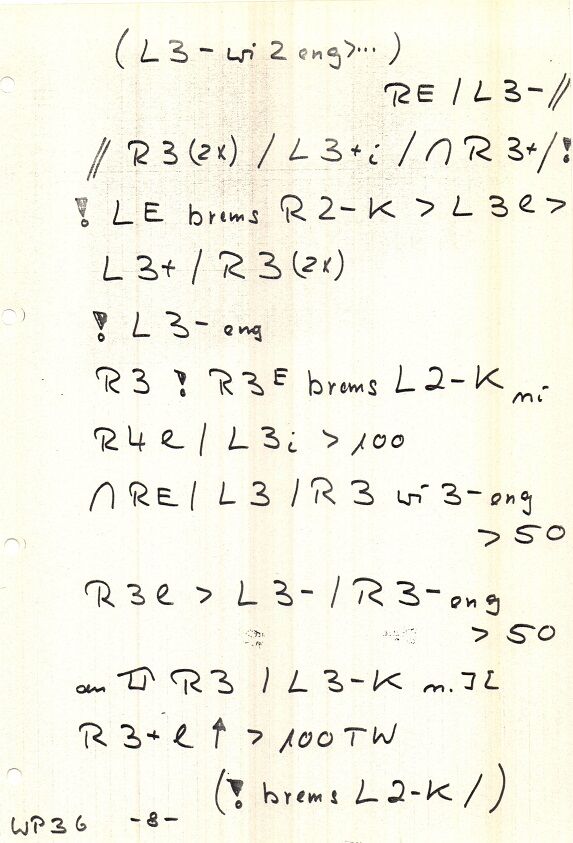 (L3-wi2eng>...)
RE/L3-//
// R3(2x) / L3+i / ∩R3+/!
! LE brems R2-K > L3e >
L3+ / R3(2x)
! L3- eng
R3 ! R3E brems L2-K ni
R4e / L3i > 100
∩RE / L3 / R3 wi 3-eng
> 50
R3e > L3- / R3-eng
> 50
am R3 / L3-K n. ][
R3+e ↑ > 100TW
(! brems L2-K /)
WP36 -8-